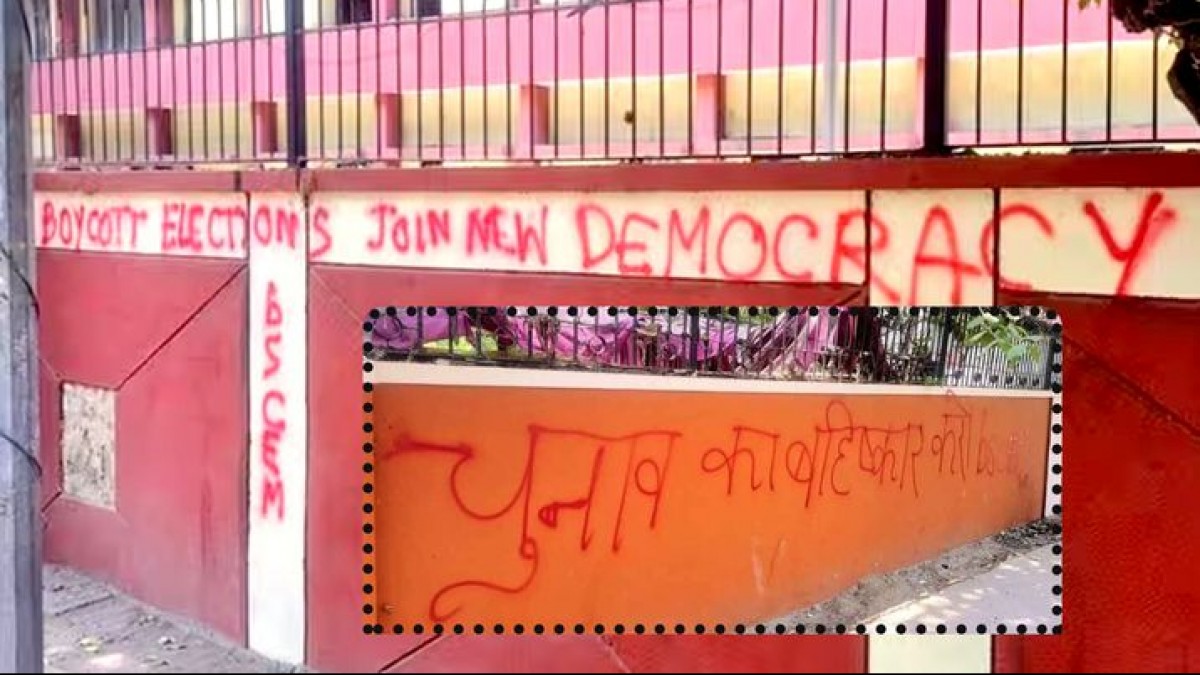 BOYCOTT ELECTIONS JOIN NEW DEMOCRACY
BSCEM
चुनाव का बहिष्कार करो